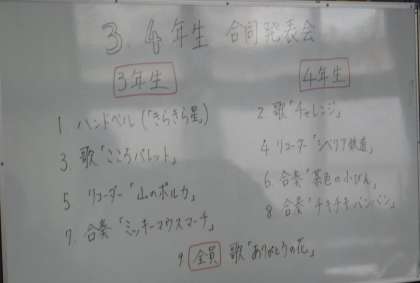 3.4年生 合同発表会
3年生 4年生
1 ハンドベル(「きらきら星」)
2. 歌「チャレンジ」
3. 歌「こころパレット」
4 リコーダー「シベリア鉄道」
5 リコーダー「山のポルカ」
6. 合奏「茶色の小びん」
7. 合奏「ミッキーマウスマーチ」
8. 合奏「チキチキバンバン」
9 全員 歌「ありがとうの花」